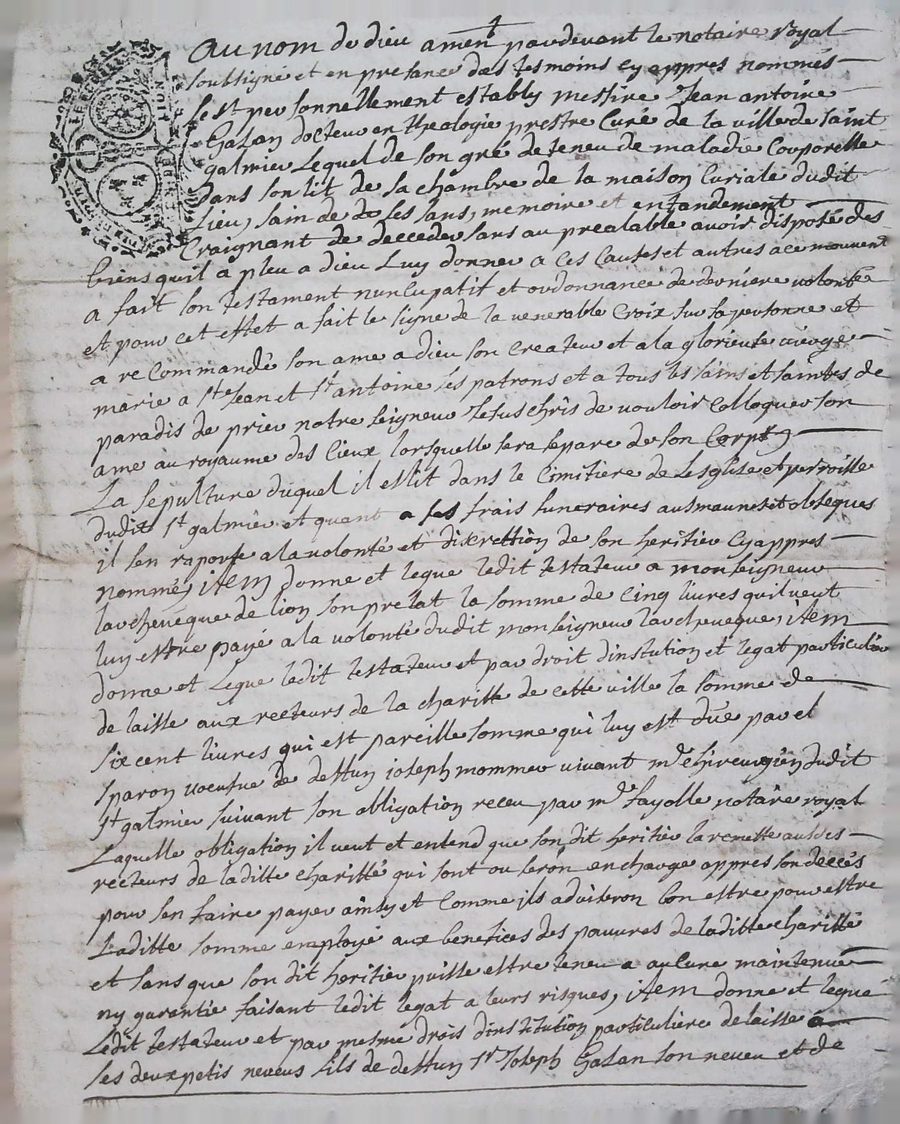 Au nom de dieu amen pardevant le notaire royal
soussigné et en presance des tesmoins cy appres nommés
s'est personnellement estably messire Jean antoine
Gasan docteur en theologie prestre Curé de la ville de saint
galmier Lequel de son gré deteneu de maladie Corporelle
dans son lit de sa chambre de la maison Curiale dudit
Lieu, sain de ses sans, memoire et entandement
Craignant de decceder sans au prealable avoir disposé des
biens quil a pleu a dieu Luy donner a ces Causes et autres a ce mouvent
a fait son testament nuncupatif et ordonnance de derniere volonté
et pour cet effet a fait le signe de la venerable Croix sur sa personne et
a recommandé son ame a dieu son Createur et a la glorieuse vierge
marie a st Jean et st antoine ses patrons et a tous les saints et saintes de
paradis de prier notre seigneur Jesus chris de vouloir Colloquer son
ame au royaume des Cieux lorsquelle sera separe de son Corps
La sepulture duquel il eslit dans le Cimitiere de Lesglise et perroisse
dudit st galmier et quant a ses frais funeraires ausmaunes et obseques
il sen raporte a la volonté et discrettion de son heritier Cy appres
nommé, item donne et legue ledit testateur a monseigneur
larcheveque de lion son prelat la somme de Cinq livres quil veut
luy estre payé a la volonté dudit monseigneur larcheveque, item
donne et Legue ledit testateur et par droit dinstution et legat particulier
delaisse aux recteurs de la charitté de cette ville la somme de
six cent livres qui est pareille somme qui luy est düe par el
sparon voeufve de deffun joseph mommer vivant me chireurgien dudit
st galmier suivant son obligation receu par me fayolle notaire royal
Laquelle obligation il veut et entend que son dit heritier la remette ausdes
recteurs de laditte charitté qui sont ou seron en charge appres son deccés
pour sen faire payer ainsy et Comme ils adviseron bon estre pour estre
Laditte somme employé aux benefices des pauvres de laditte charitté
et sans que son dit heritier puisse estre teneu a aucune maintenue
ny garantie faisant ledit legat a leurs risques, item donne et legue
Ledit testateur et par mesme drois dinstitution particuliere delaisse a
ses deux petis neveus fils de deffun sr Joseph Gasan son neveu et de